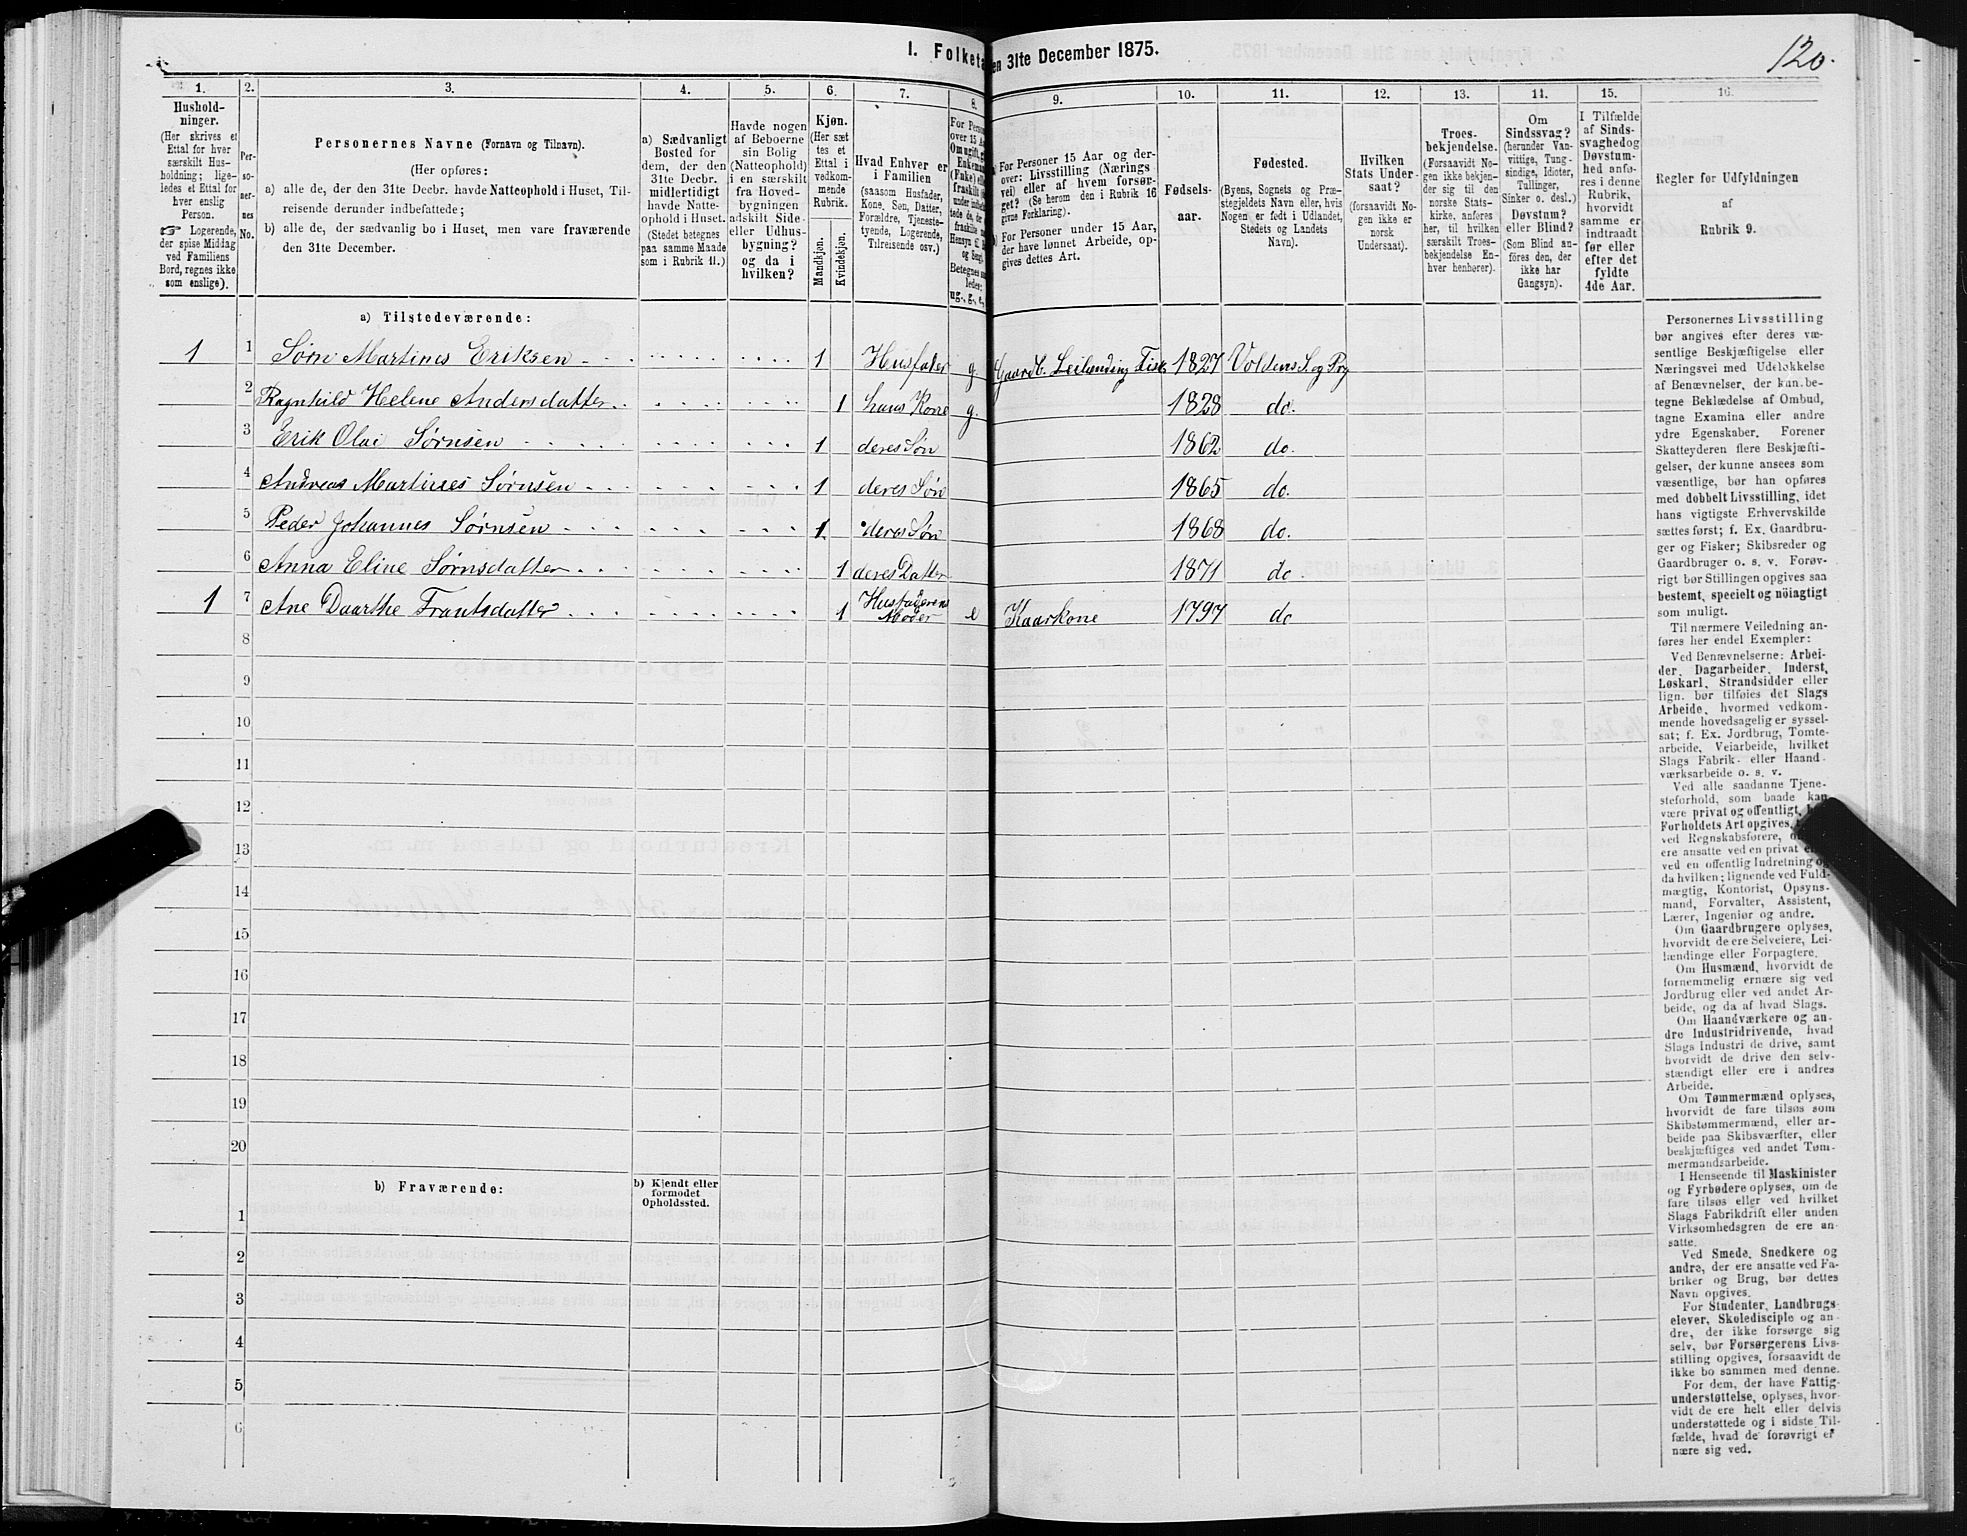 I. Folketa
en 31te December 1875.
120.
1.
2.
3.
4.
5.
6.
7.
8.
9.
10.
11.
12.
13.
14.
15.
16.
Hushold-
ninger.
(Her skrives et
Ettal for hver
særskilt Hus-
holdning; lige-
ledes et Ettal for
hver enslig
Person.
☞ Logerende,
der spise Middag
ved Familiens
Bord, regnes ikke
som enslige).
Per-
so-
ner-
nes
No.
Personernes Navne (Fornavn og Tilnavn).
(Her opføres:
a) alle de, der den 31te Decbr. havde Natteophold i Huset, Til-
reisende derunder indbefattede;
b) alle de, der sædvanlig bo i Huset, men vare fraværende
den 31te December.
a) Sædvanligt
Bosted for
dem, der den
31te Decbr.
midlertidigt
havde Natte-
ophold i Huset.
(Stedet betegnes
paa samme Maade
som i Rubrik 11.)
Havde nogen
af Beboerne
sin Bolig
(Natteophold)
i en særskilt
fra Hoved-
bygningen
adskilt Side-
eller Udhus-
bygning?
og da i
hvilken?
Kjøn.
(Her sæt
tes et
Ettal i
vedkom-
mende
Rubrik.
Mandkjøn.
Kvindekjøn.
Hvad Enhver er
i Familien
(saasom Husfader,
Kone, Søn, Datter,
Forældre, Tjeneste-
tyende, Logerende,
Tilreisende osv.)
For Person
over 15 Aa
Om ugift, g
Enkeman
(Enke) el
fraskilt
under
tede de, de
fraskilte
Hensyn til
og Seng
Betegnes
ledes:
ug., g., e,
a) For Personer 15 Aar og der-
over: Livsstilling (Nærings
vei) eller af hvem forsør-
get? (Se herom den i Rubrik 16
givne Forklaring).
b) For Personer under 15 Aar,
der have lønnet Arbeide, op-
gives dettes Art.
Fødsels-
aar.
Fødested.
(Byens, Sognets og Præ-
stegjeldets Navn eller, hvis
Nogen er født i Udlandet,
Stedets og Landets
Navn).
Hvilken
Stats Under-
saat?
(forsaavidt No-
gen ikke er
norsk
Undersaat).
Troes-
bekjendelse.
(Forsaavidt No-
gen ikke bekjen-
der sig til den
norske Stats-
kirke, anføres
her, til hvilken
særskilt Troes-
bekjendelse En-
hver henhører).
Om
Sindssvag?
(herunder Van-
vittige, Tung-
sindige, Idioter,
Tullinger,
Sinker o. desl.)
Døvstum?
eller Blind?
(Som Blind an-
føres den, der
ikke har
Gangsyn).
I Tilfælde
af Sinds-
svaghed og
Døvstum-
hed anfø-
res i denne
Rubrik,
hvorvidt
samme er
indtraadt
før eller
efter det
fyldte
4de Aar.
Regler for Udfyldningen
af
Rubrik 9.
a) Tilstedeværende:
1 1 Sørn Martines Eriksen 1 Husfader g. Gaardb. Leilending Fisk. 1827 Voldens S. og Prg
2 Ragnhild Helene Andersdatter 1 hans Kone g. 1828 do.
3 Erik Olai Sørnsen 1 deres Søn 1862 do.
4 Andreas Martines Sørnsen 1 deres Søn 1865 do.
5 Peder Johannes Sørnsen 1 deres Søn 1868 do.
6 Anna Eline Sørnsdatter 1 deres Datter 1871 do
1 7 Ane Daarthe Frantsdatter 1 Husfaderens
Moder e Kaarkone 1797 do
8
9
10
11
12
13
14
15
16
17
18
19
20
b) Fraværende:
b) Kjendt eller
formodet
Opholdssted.
1
2
3
4
5
6
Personernes Livsstilling
bør angives efter deres væ-
sentlige Beskjæftigelse eller
Næringsvei med Udelukkelse
af Benævnelser, der kun be-
tegne Beklædelse af Ombud,
tagne Examina eller andre
ydre Egenskaber. Forener
Skatteyderen flere Beskjæfti-
gelser, der kunne ansees som
væsentlige, bør han opføres
med dobbelt Livsstilling, idet
hans vigtigste Erhvervskilde
sættes først; f. Ex. Gaardbru-
ger og Fisker; Skibsreder og
Gaardbruger o. s. v. Forøv-
rigt bør Stillingen opgives saa
bestemt, specielt og nöiagtigt
som muligt.
Til nærmere Veiledning an-
føres her endel Exempler:
Ved Benævnelserne: Arbei-
der, Dagarbeider, Inderst,
Løskarl, Strandsidder eller
lign. bør tilføies det Slags
Arbeide, hvormed vedkom-
mende hovedsagelig er syssel-
sat; f. Ex. Jordbrug, Tomte-
arbeide, Veiarbeide, hvilket
Slags Fabrik- eller Haand-
værksarbeide o. s. v.
Ved alle saadanne Tjene-
steforhold, som baade kan
være privat og offentligt,
Forholdets Art opgives,
ved Regnskabsførere,
ere ansatte ved en privat
ved en offentlig Indretning og
da hvilken; lignende ved Fuld-
mægtig, Kontorist, Opsyns-
mand, Forvalter, Assistent,
Lærer, Ingeniør og andre.
Om Gaardbrugere oplyses,
hvorvidt de ere Selveiere, Lei-
lændinge eller Forpagtere.
Om Husmænd, hvorvidt de
fornemmelig ernære sig ved
Jordbrug eller ved andet Ar-
beide, og da af hvad Slags.
Om Haandværkere og an-
dre Industridrivende, hvad
Slags Industri de drive, samt
hvorvidt de drive den selv-
stændigt eller ere i andres
Arbeide.
Om Tømmermænd oplyses,
hvorvidt de fare tilsøs som
Skibstømmermænd, eller ar-
beide paa Skibsværfter, eller
beskjæftiges ved andet Tøm-
mermandsarbeide.
I Henseende til Maskinister
og Fyrbødere oplyses, om de
fare tilsøs eller ved hvilket
Slags Fabrikdrift eller anden
Virksomhedsgren de ere an-
satte.
Ved Smede, Snedkere og
andre, der ere ansatte ved Fa-
briker og Brug, bør dettes
Navn opgives.
For Studenter, Landbrugs-
elever, Skoledisciple og an-
dre, der ikke forsørge sig
selv, bør Forsørgerens Livs-
stilling opgives, forsaavidt de
ikke bo sammen med denne.
For dem, der have Fattig-
understøttelse, oplyses, hvor-
vidt de ere helt eller delvis
understøttede og i sidste Til-
fælde, hvad de forøvrigt er
nære sig ved.